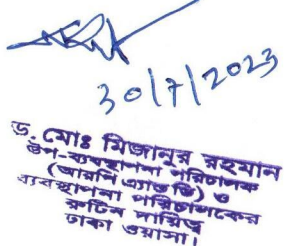 30/7/2023
ড. মোঃ মিজানুর রহমান
উপ-ব্যবস্থাপনা পরিচালক
(আরপি এ্যান্ড ডি) ও
ব্যবস্থাপনা পরিচালকের
রুটিন দায়িত্ব
ঢাকা ওয়াসা।